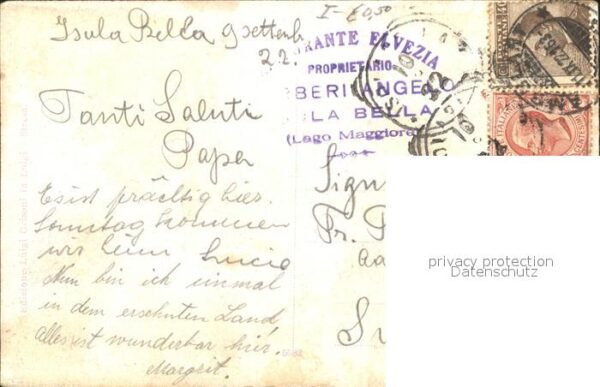 I - 60,50
Isula Bella 9 settemb.
22.
RANTE ELVEZIA
PROPRIETARIO
BERI ANGELO
LA BELLA
(Lago Maggiore)
Tanti Saluti
Papa
Es ist prächtig hier.
Sonntag kommen
wir heim Lucie
Nun bin ich einmal
in dem ersehnten Land
alles ist wunderbar hier.
Margrit.
Sign
Fr.
privacy protection
Datenschutz